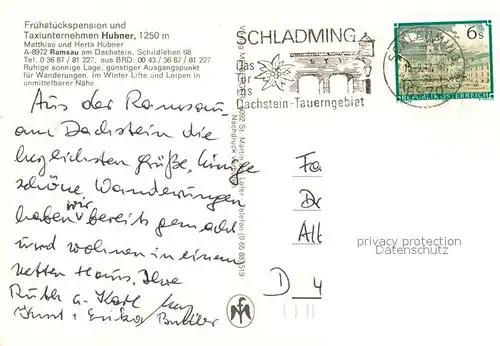 Frühstückspension und
Taxiunternehmen Hubner, 1250 m
Matthias und Herta Hubner
A-8972 Ramsau am Dachstein, Schildlehen 68
Tel. 0 36 87 / 81 227, aus BRD: 00 43 / 36 87 / 81 227
Ruhige sonnige Lage, günstiger Ausgangspunkt
für Wanderungen. Im Winter Lifte und Loipen in
unmittelbarer Nähe.
SCHLADMING
Das
Tor
des
Dachstein-Tauerngebiet
6s
REPUBLIK ÖSTERREICH
SCHLADMING
Aus der Ramsau
am Dachstein die
herzlichsten Grüße, einige
schöne Wanderungen
haben wir bereits gemacht
und wohnen in einem
netten Haus. Ihre
Ruth u. Karl
Ernst + Erika
Fa
Dr
Alt
D 4
St. Martin
Lofer
Telefon (0 65 88) 519
privacy protection
Datenschutz